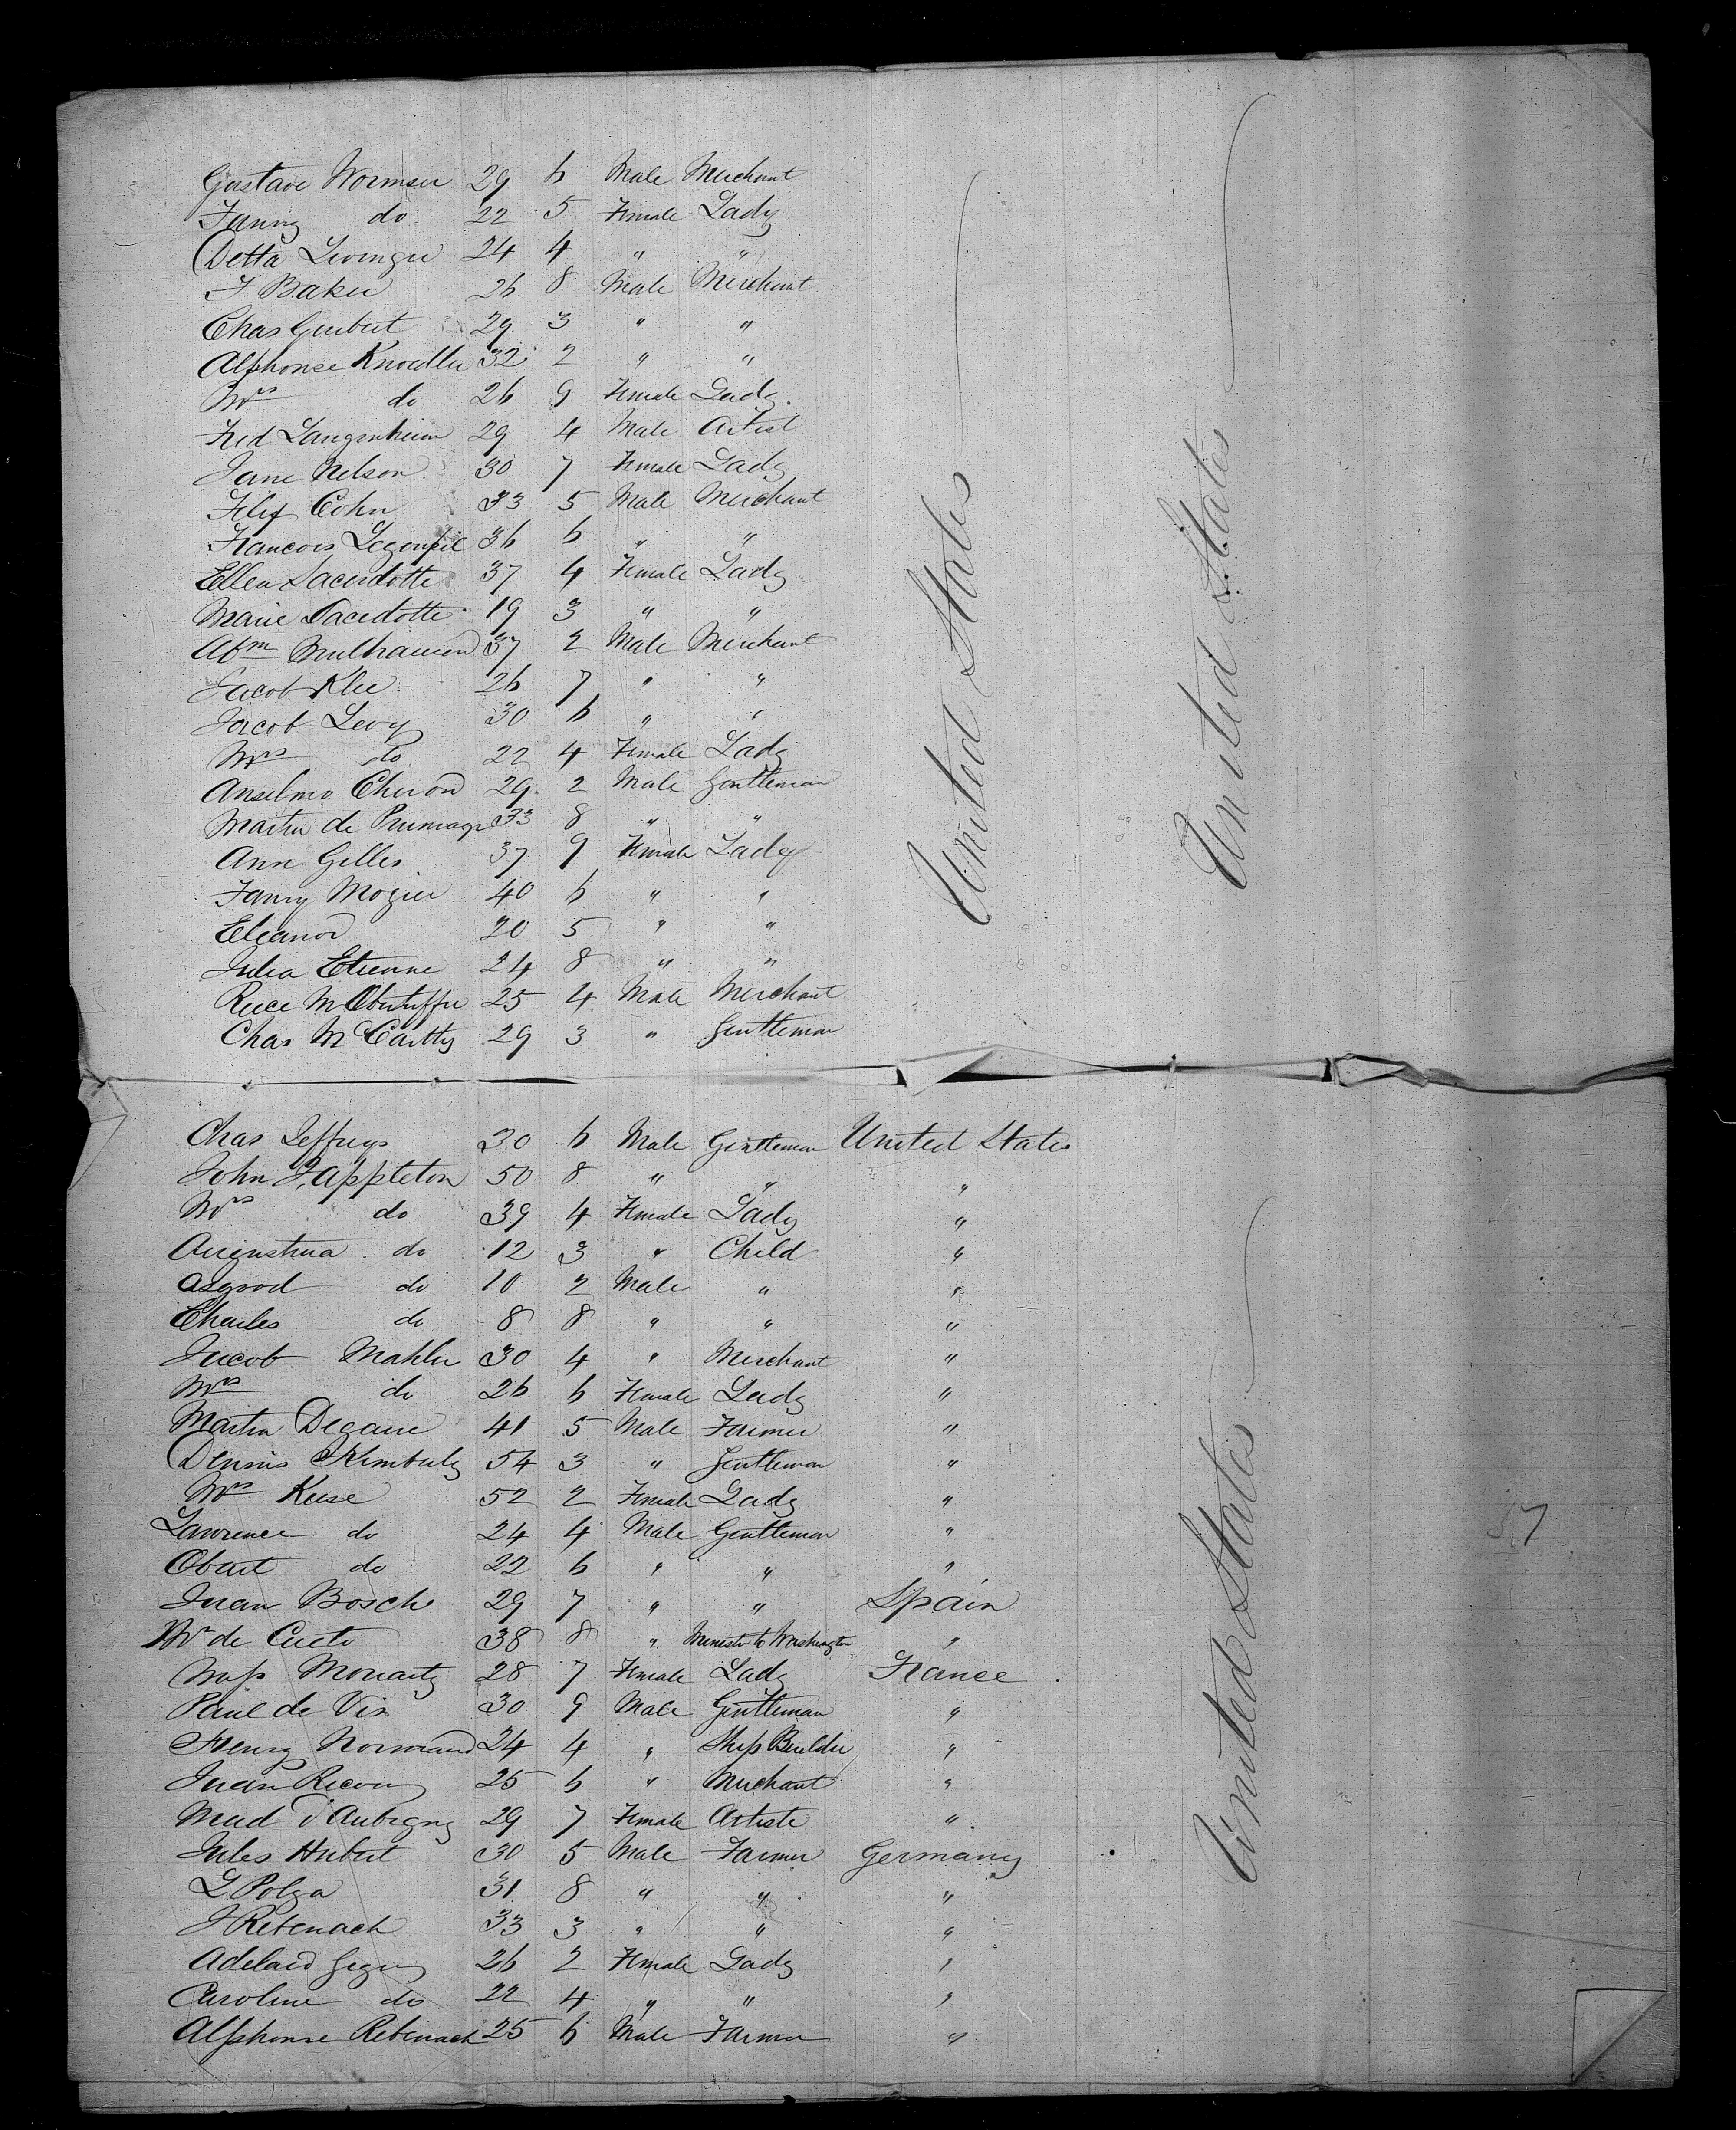 Gustave Wormser 29 6 Male Merchant
Fanny do 22 5 Female Lady
Detta Livinger 24 4 " "
F Baker 26 8 Male Merchant
Chas Guibert 29 3 " "
Alphonse Knoedler 32 2 " "
Mrs do 26 9 Female Lady
Fred Langenheim 29 4 Male Artist
Jane Nelson 30 7 Female Lady
Felix Cohn 33 5 Male Merchant
Francois 36 6 " "
Ellen Sacerdotte 37 4 Female Lady
Marie Sacerdotte 19 3 " "
Abm Mulhausen 37 2 Male Merchant
Jacob Klee 26 7 " "
Jacob Levy 30 6 " "
Mrs do 22 4 Female Lady
Anselmo Cheron 29 2 Male Gentleman
Martin de 33 8 " "
Ann Gilles 37 9 Female Lady
Fanny Mozier 40 6 " "
Eleanor 20 5 " "
Julia Etienne 24 8 " "
Reece M 25 4 Male Merchant
Chas McCartty 29 3 " Gentleman
United States
United States
Chas Jeffreys 30 6 Male Gentleman United States
John J. Appleton 50 8 " " "
Mrs do 39 4 Female Lady "
do 12 3 " Child "
Osgood do 10 2 Male " "
Charles do 8 8 " " "
Jacob Mahler 30 4 " Merchant "
Mrs do 26 6 Female Lady "
Martin Degane 41 5 Male Farmer "
Dennis Kimberly 54 3 " Gentleman "
Mrs Keese 52 2 Female Lady "
Lawrence do 24 4 Male Gentleman "
Obert do 22 6 " " "
Juan Bosch 29 7 " " Spain
Mr de Cueto 38 8 " Minister to Washington "
Miss Moriarty 28 7 Female Lady France
Paul de Vis 30 9 Male Gentleman "
Henry Normand 24 4 " Ship Builder "
Juan Ricon 25 6 " Merchant "
Mad d'Aubigny 29 7 Female Artiste "
Jules Hubert 30 5 Male Farmer Germany
L Polga 31 8 " " "
J Rebenach 33 3 " " "
Adelaid 26 2 Female Lady "
Caroline do 22 4 " " "
Alphonse Rebenach 25 6 Male Farmer "
United States
57